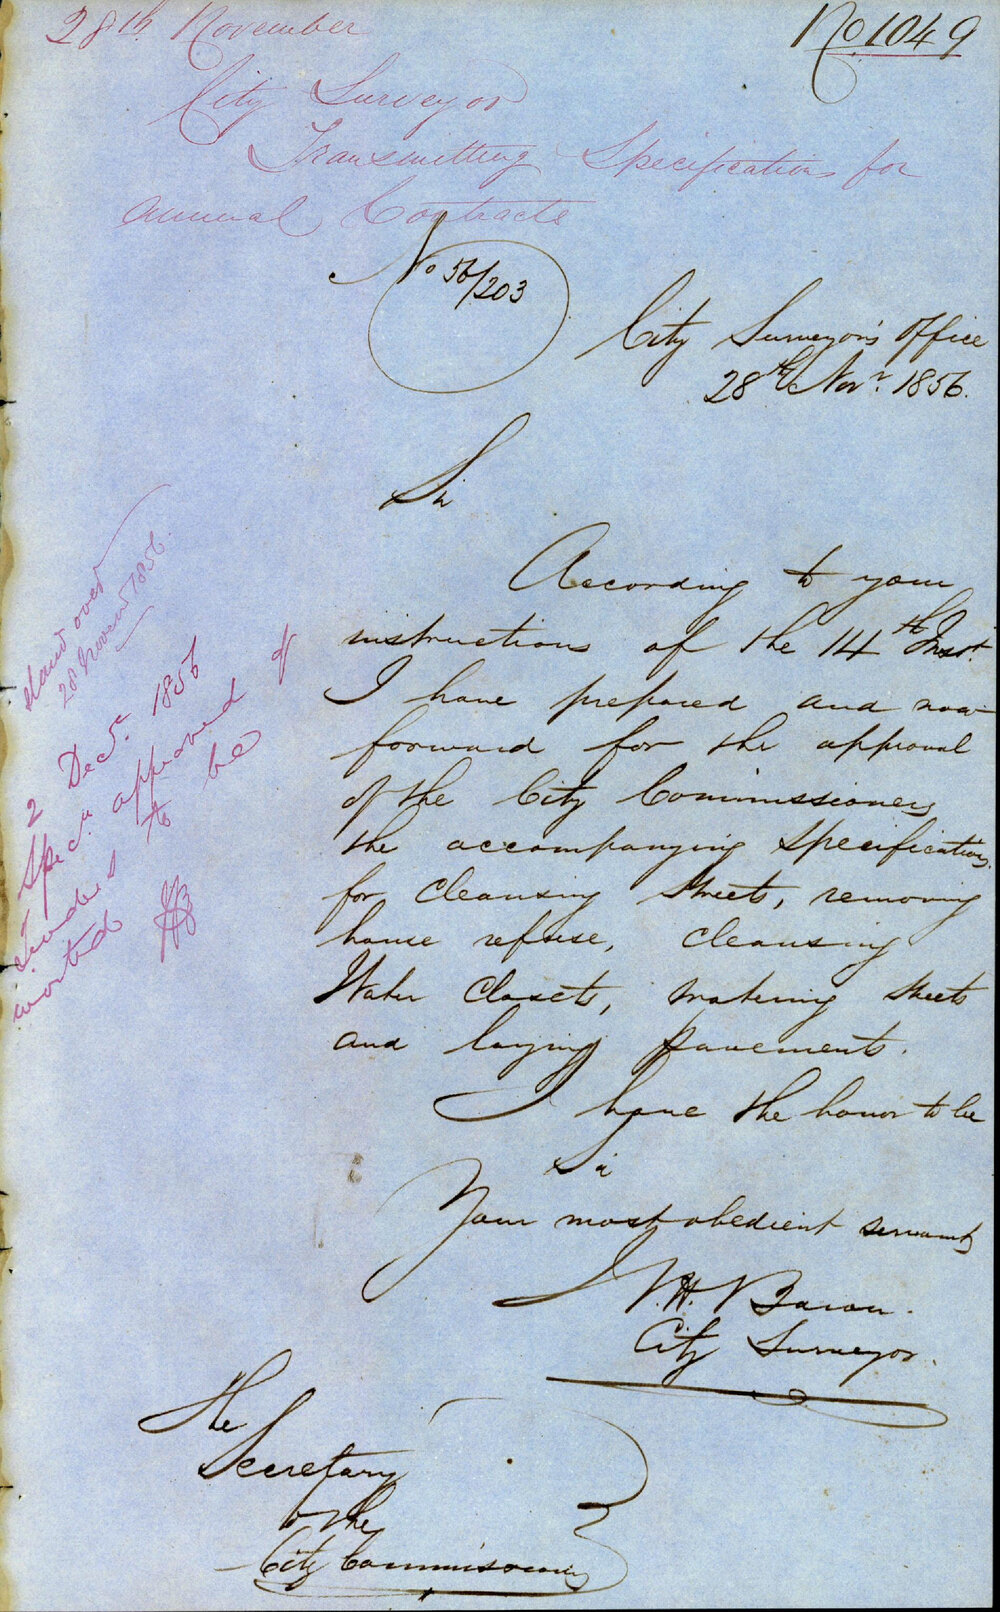 28th November
No. 1049
City Surveyor
Transmitting Specifications for
annual Contracts
No 56/203
City Surveyor's Office
28th Novr. 1856.
Sir
According to your
instructions of the 14th Inst.
I have prepared and now
forward for the approval
of the City Commissioners
the accompanying Specifications
for Cleansing Streets, removing
house refuse, Cleansing
Water Closets, watering Streets
and laying pavements.
I have the honor to be
Sir
Your most obedient servant
H. Baron.
City Surveyor.
The
Secretary
to the
City Commissioners
Stand over
28 Novem 1856.
2 Decr. 1856
Specn. approved of
Tenders to be